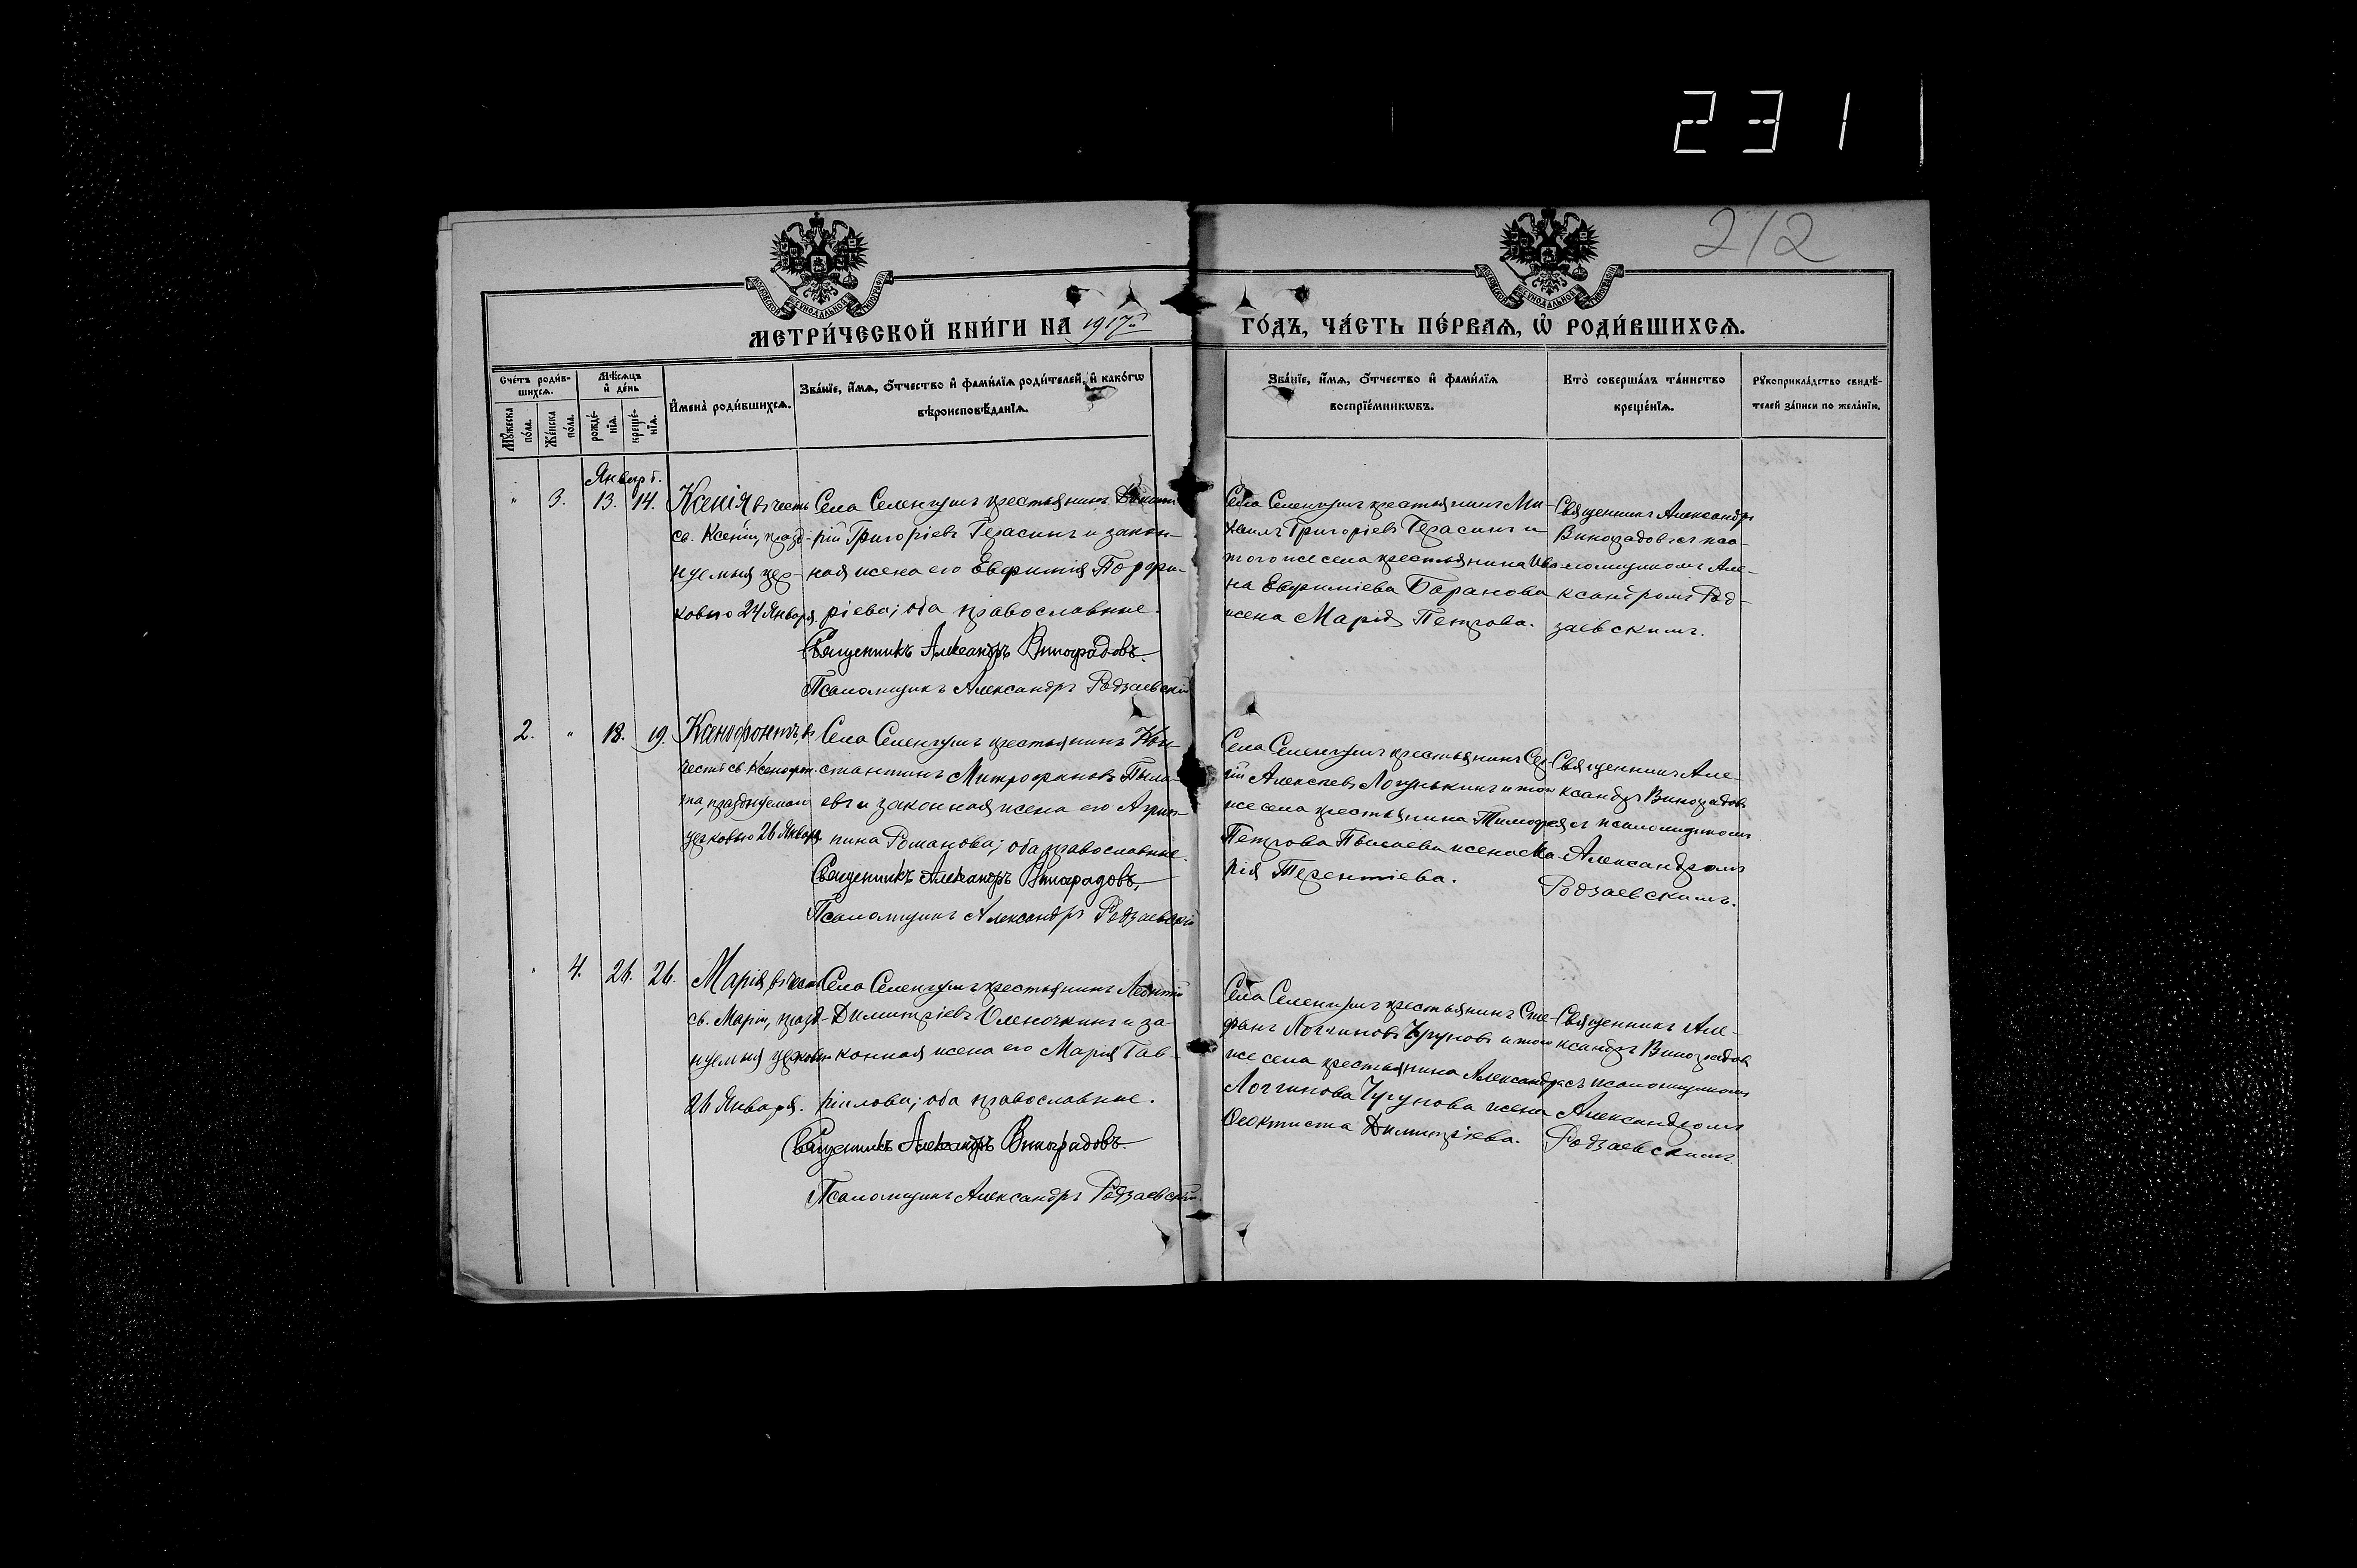 231
212
МОСКОВСКОЙ СѴНОДАЛЬНОЙ ТИПОГРАФІИ
МОСКОВСКОЙ СѴНОДАЛЬНОЙ ТИПОГРАФІИ
МЕТРИ́ЧЕСКОЙ КНИ́ГИ НА 1917 ГО́ДЪ, ЧА́СТЬ ПЕ́РВАѦ, Ѽ РОДИ́ВШИХСѦ.
Сче́тъ роди́в-
шихсѧ.
Мѹ́жеска
по́ла.
Же́нска
по́ла.
Мѣ́сѧцъ
и҆ де́нь
рожде́-
нїѧ.
креще́-
нїѧ.
И҆мена̀ роди́вшихсѧ.
Зва́нїе, и҆́мѧ, ѻ҆́тчество и҆ фами́лїѧ роди́телей, и҆ како́гѡ
вѣроисповѣ́данїѧ.
Зва́нїе, и҆́мѧ, ѻ҆́тчество и҆ фами́лїѧ
воспрїе́мникѡвъ.
Кто̀ соверша́лъ та́инство
креще́нїѧ.
Рꙋкоприкла́дство свидѣ́-
телей за́писи по жела́нїю.
Январ.
" 3. 13. 14.
Ксенія въ честь
св. Ксеніи, празд-
нуемыя цер-
ковью 24 Января.
Села Селенгушъ крестьянинъ
рій Григоріевъ Герасинъ и закон-
ная жена его Евфимія Порфи-
ріева; оба православные.
Священникъ Александръ Виноградовъ.
Псаломщикъ Александръ Родзаевскій
Села Селенгушъ крестьянинъ Ми-
хаилъ Григоріевъ Герасинъ и
того же села крестьянина Ива-
на Евфиміева Баранова
жена Марія Петрова.
Священникъ Александръ
Виноградовъ съ пса-
ломщикомъ Але-
ксандромъ Род-
заевскимъ.
2. " 18. 19.
Ксенофонтъ, въ
честь св. Ксенофон-
та, празднуемаго
церковью 26 Января.
Села Селенгушъ крестьянинъ Кон-
стантинъ Митрофановъ Пыла-
евъ и законная жена его Агрип-
пина Романова; оба православные.
Священникъ Александръ Виноградовъ.
Псаломщикъ Александръ Родзаевскій
Села Селенгушъ крестьянинъ Сер-
гій Алексѣевъ Логунькинъ и того
же села крестьянина Тимофея
Петрова Пылаева жена Ма-
рія Терентіева.
Священникъ Але-
ксандръ Виноградовъ
съ псаломщикомъ
Александромъ
Родзаевскимъ.
" 4. 26. 26.
Марія, въ честь
св. Маріи, празд-
нуемыя церковью
26 Января.
Села Селенгушъ крестьянинъ Леонтій
Димитріевъ Оленочкинъ и за-
конная жена его Марія Гав-
ріилова; оба православные.
Священникъ Александръ Виноградовъ
Псаломщикъ Александръ Родзаевскій.
Села Селенгушъ крестьянинъ Сте-
фанъ Логгиновъ Чугуновъ и того
же села крестьянина Александра
Логгинова Чугунова жена
Ѳеоктиста Димитріева.
Священникъ Але-
ксандръ Виноградовъ
съ псаломщикомъ
Александромъ
Родзаевскимъ.